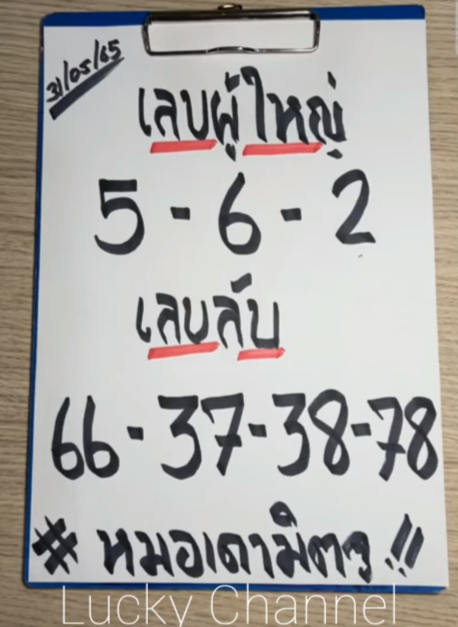 31/05/65
เลขผู้ใหญ่
5 - 6 - 2
เลขลับ
66 - 37 - 38 - 78
# หมอเดามิตๆ !!
Lucky Channel